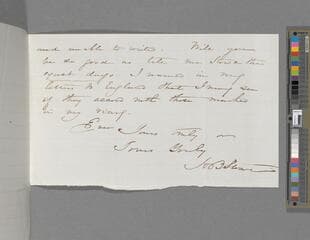 and unable to write. Will you
be so good as let me know the
exact days I named in my
letters to England that I may see
if they accord with those marked
in my diary.
Ever Yours truly or
Yours Truly